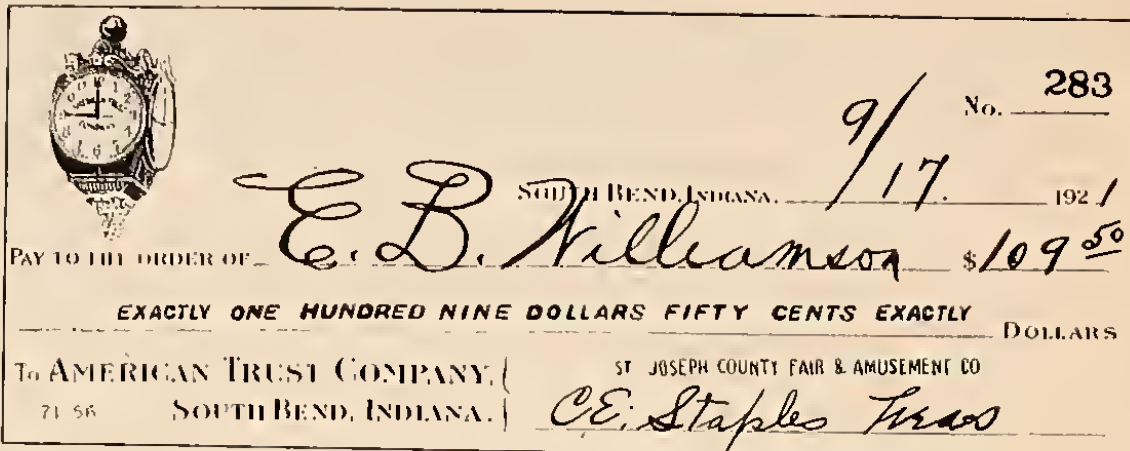 No. 283
SOUTH BEND, INDIANA. 9/17. 1921
PAY TO THE ORDER OF E. B. Williamson $109 50
EXACTLY ONE HUNDRED NINE DOLLARS FIFTY CENTS EXACTLY
DOLLARS
To AMERICAN TRUST COMPANY,
71-56 SOUTH BEND, INDIANA.
ST JOSEPH COUNTY FAIR & AMUSEMENT CO
C.E. Staples Treas